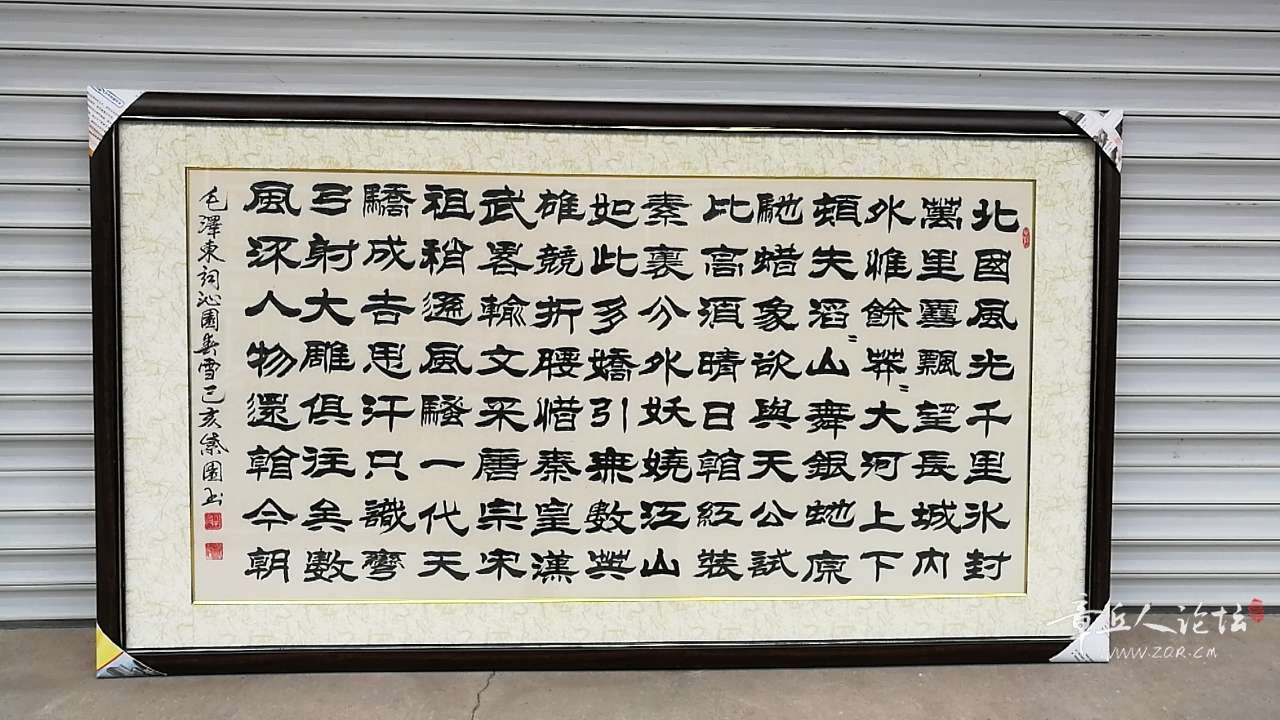 北國風光千里冰封
萬里雪飄望長城內
外惟餘莽〻大河上下
頓失滔〻山舞銀蛇原
馳蜡象欲與天公試
比高須晴日看紅裝
素裹分外妖嬈江山
如此多嬌引無數英
雄競折腰惜秦皇漢
武畧輸文采唐宗宋
祖稍遜風騷一代天
驕成吉思汗只識彎
弓射大雕俱往矣數
風流人物還看今朝
毛澤東詞沁園春雪己亥紫園书
章丘人论坛
WWW.ZQR.CM